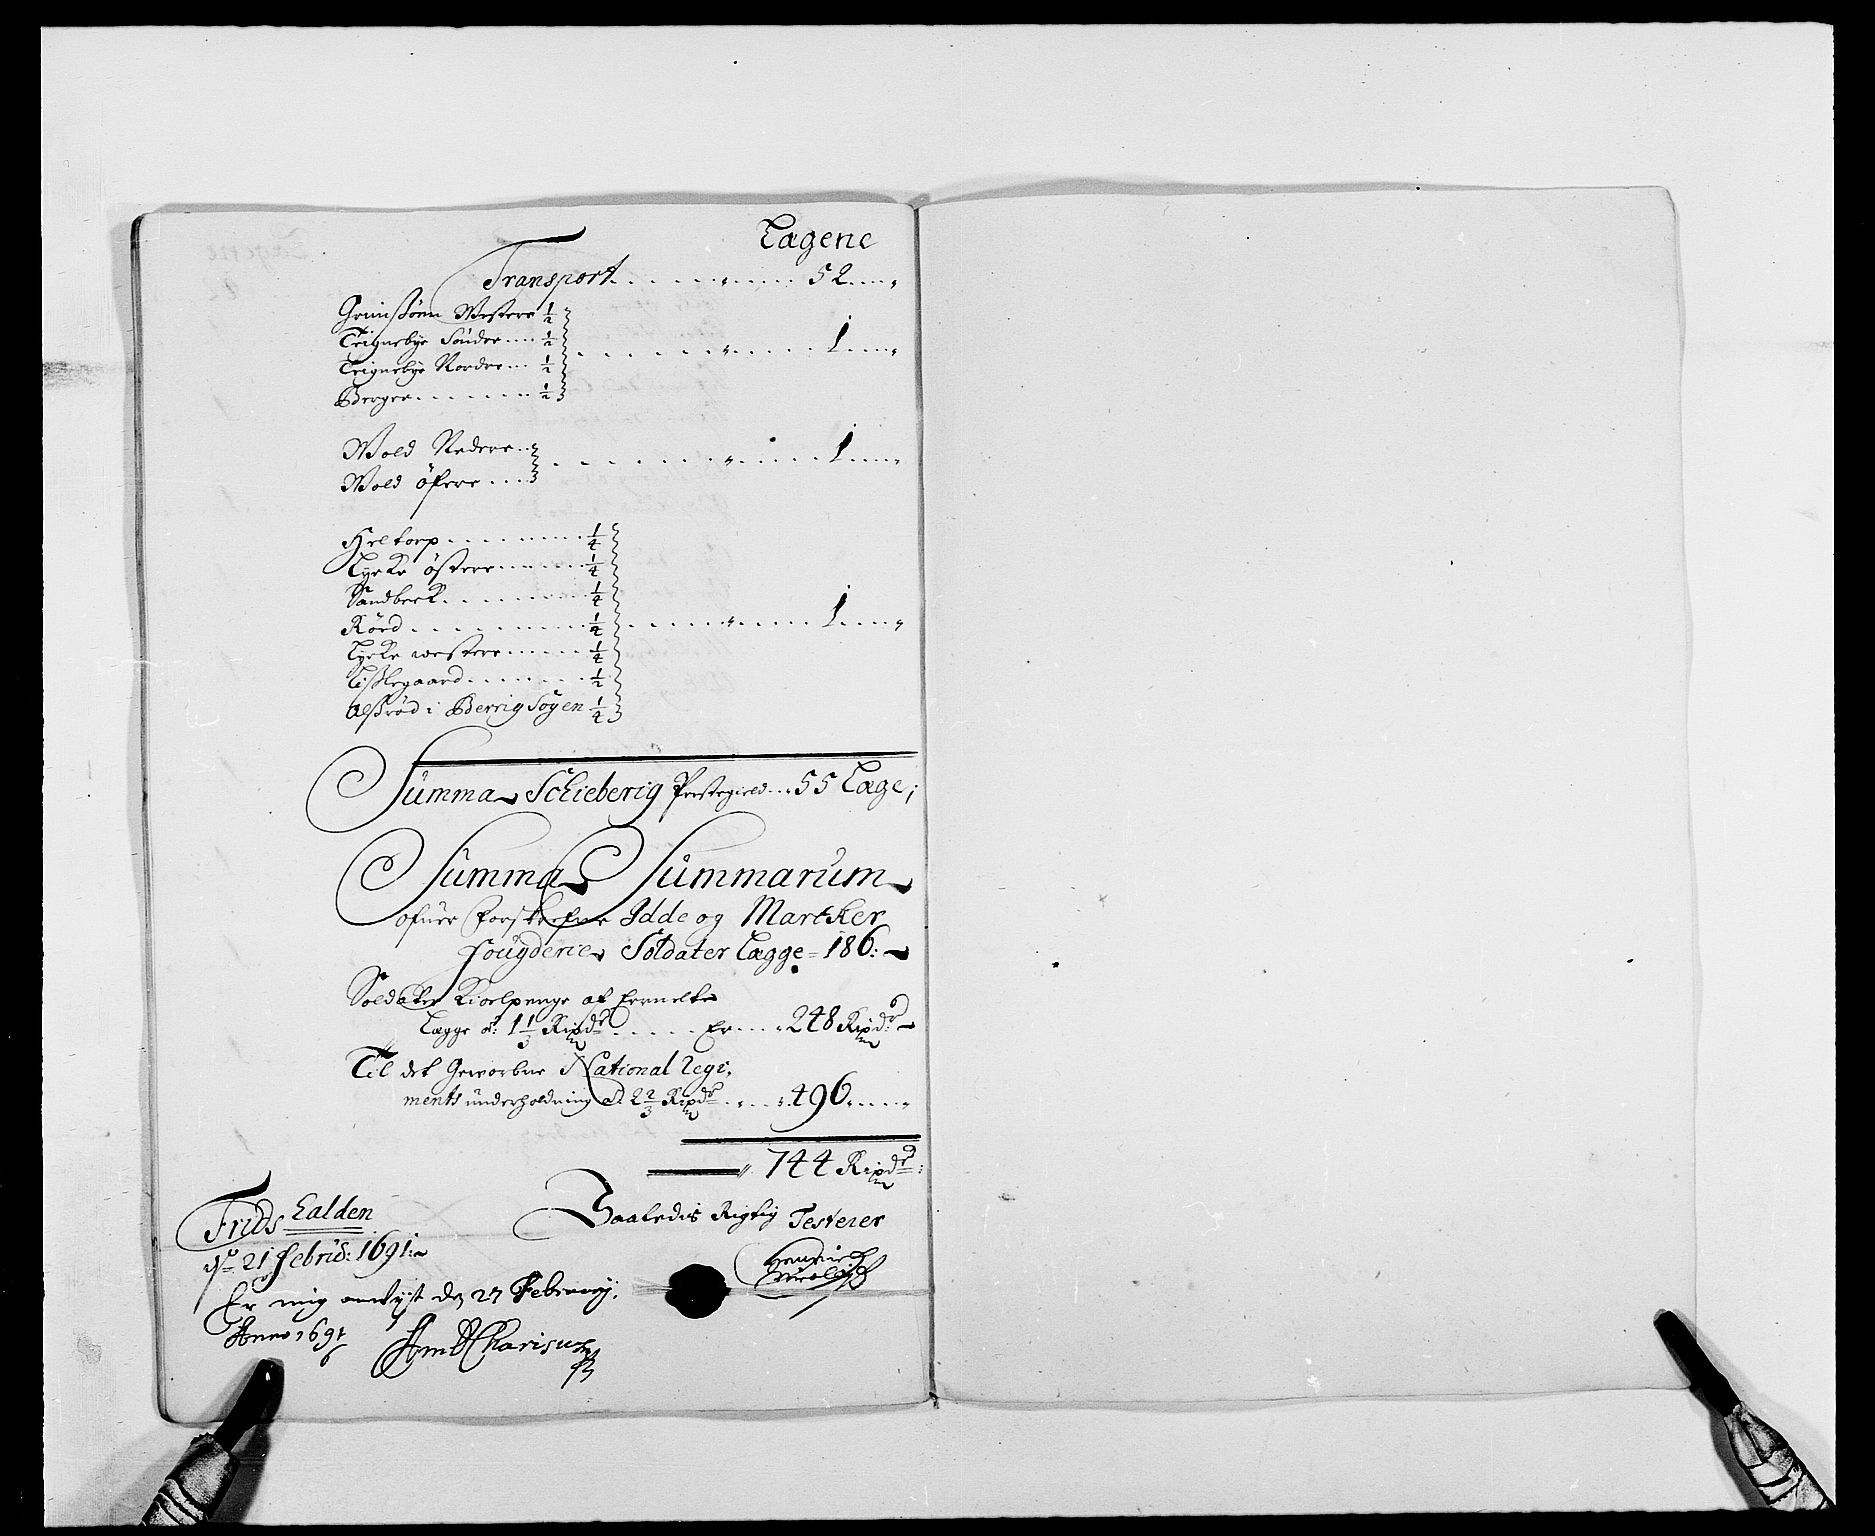 Lægene
Transport . . . . . . . . . 52 . . . .
Grimsøen Westere ½
Teignebye Sönder . . . ½
Teignebye Nordre . . . ½ . . . . . . . . . 1 . . . .
Berger . . . . . . . ½
Wold Nedere . . . . . . . . . . . 1 . . . .
Wold öfere . . .
Heltorp . . . . . . . . ¼
Lycke östere . . . . . . ¼
Sandbeck . . . . . . . . ¼
Röed . . . . . . . . . ¼ . . . . . . . . . 1 . . . .
Lycke westere . . . . . ¼
Tistlegaard . . . . . . . ½
Alßröd i Berrig Sogen ¼
Summa Schieberig Prestegield . . . 55 Læge;
Summa Summarum
ofuer forskrefne Idde og Marcker
fougderie Soldater Lægge = 186:
Soldater Kioelpenge af bemelte
Lægge a: 1⅓ Rixdr . . . . . Er . . . 248 Rixdr
Til det Geworbne National Regi,
ments underholdning a. 2⅔ Rixdr . . . . . 496 . . . . .
744 Rixdr:
Saaledis Rigtig Testerer
Frids Halden
dn 21 febrü: 1691:
Henrich
Er mig anvyst den 27 February,
Anno 1691